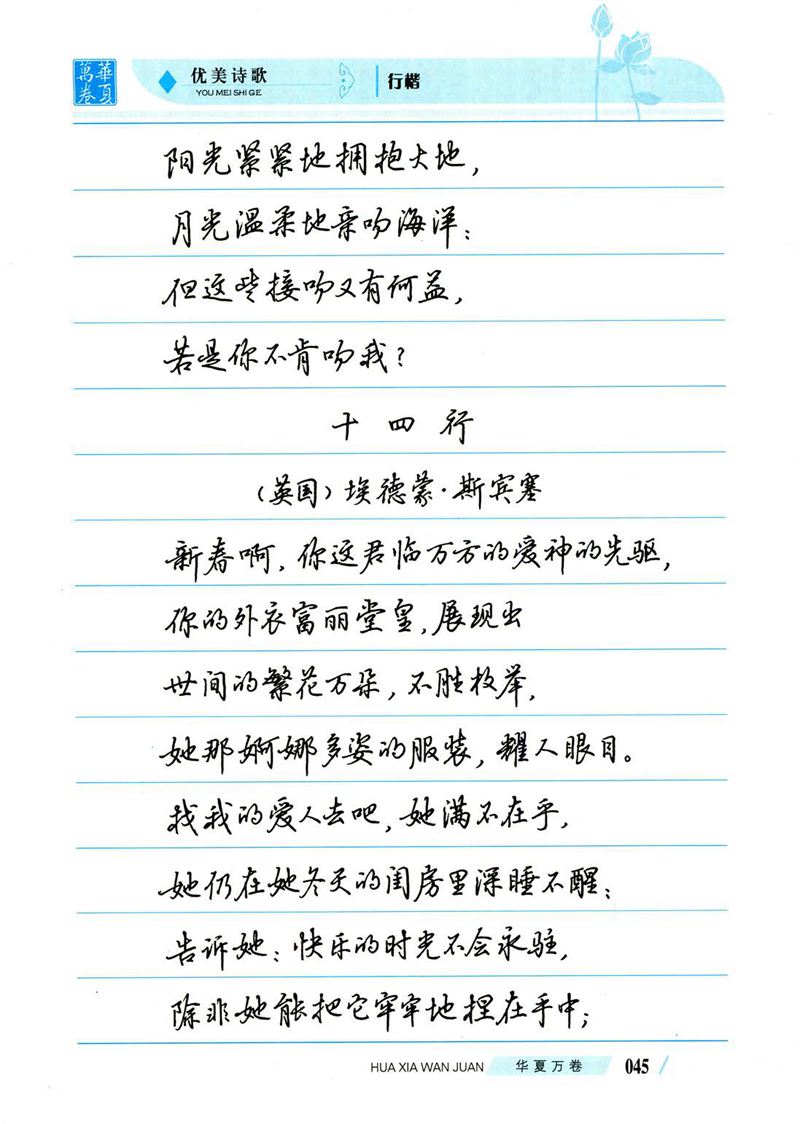 華夏
萬卷
优美诗歌
YOU MEI SHI GE
行楷
阳光紧紧地拥抱大地，
月光温柔地亲吻海洋；
但这些接吻又有何益，
若是你不肯吻我？
十四行
（英国）埃德蒙·斯宾塞
新春啊，你这君临万方的爱神的先驱，
你的外衣富丽堂皇，展现出
世间的繁花万朵，不胜枚举，
她那婀娜多姿的服装，耀人眼目。
找我的爱人去吧，她满不在乎，
她仍在她冬天的闺房里深睡不醒；
告诉她：快乐的时光不会永驻，
除非她能把它牢牢地捏在手中；
HUA XIA WAN JUAN
华夏万卷
045